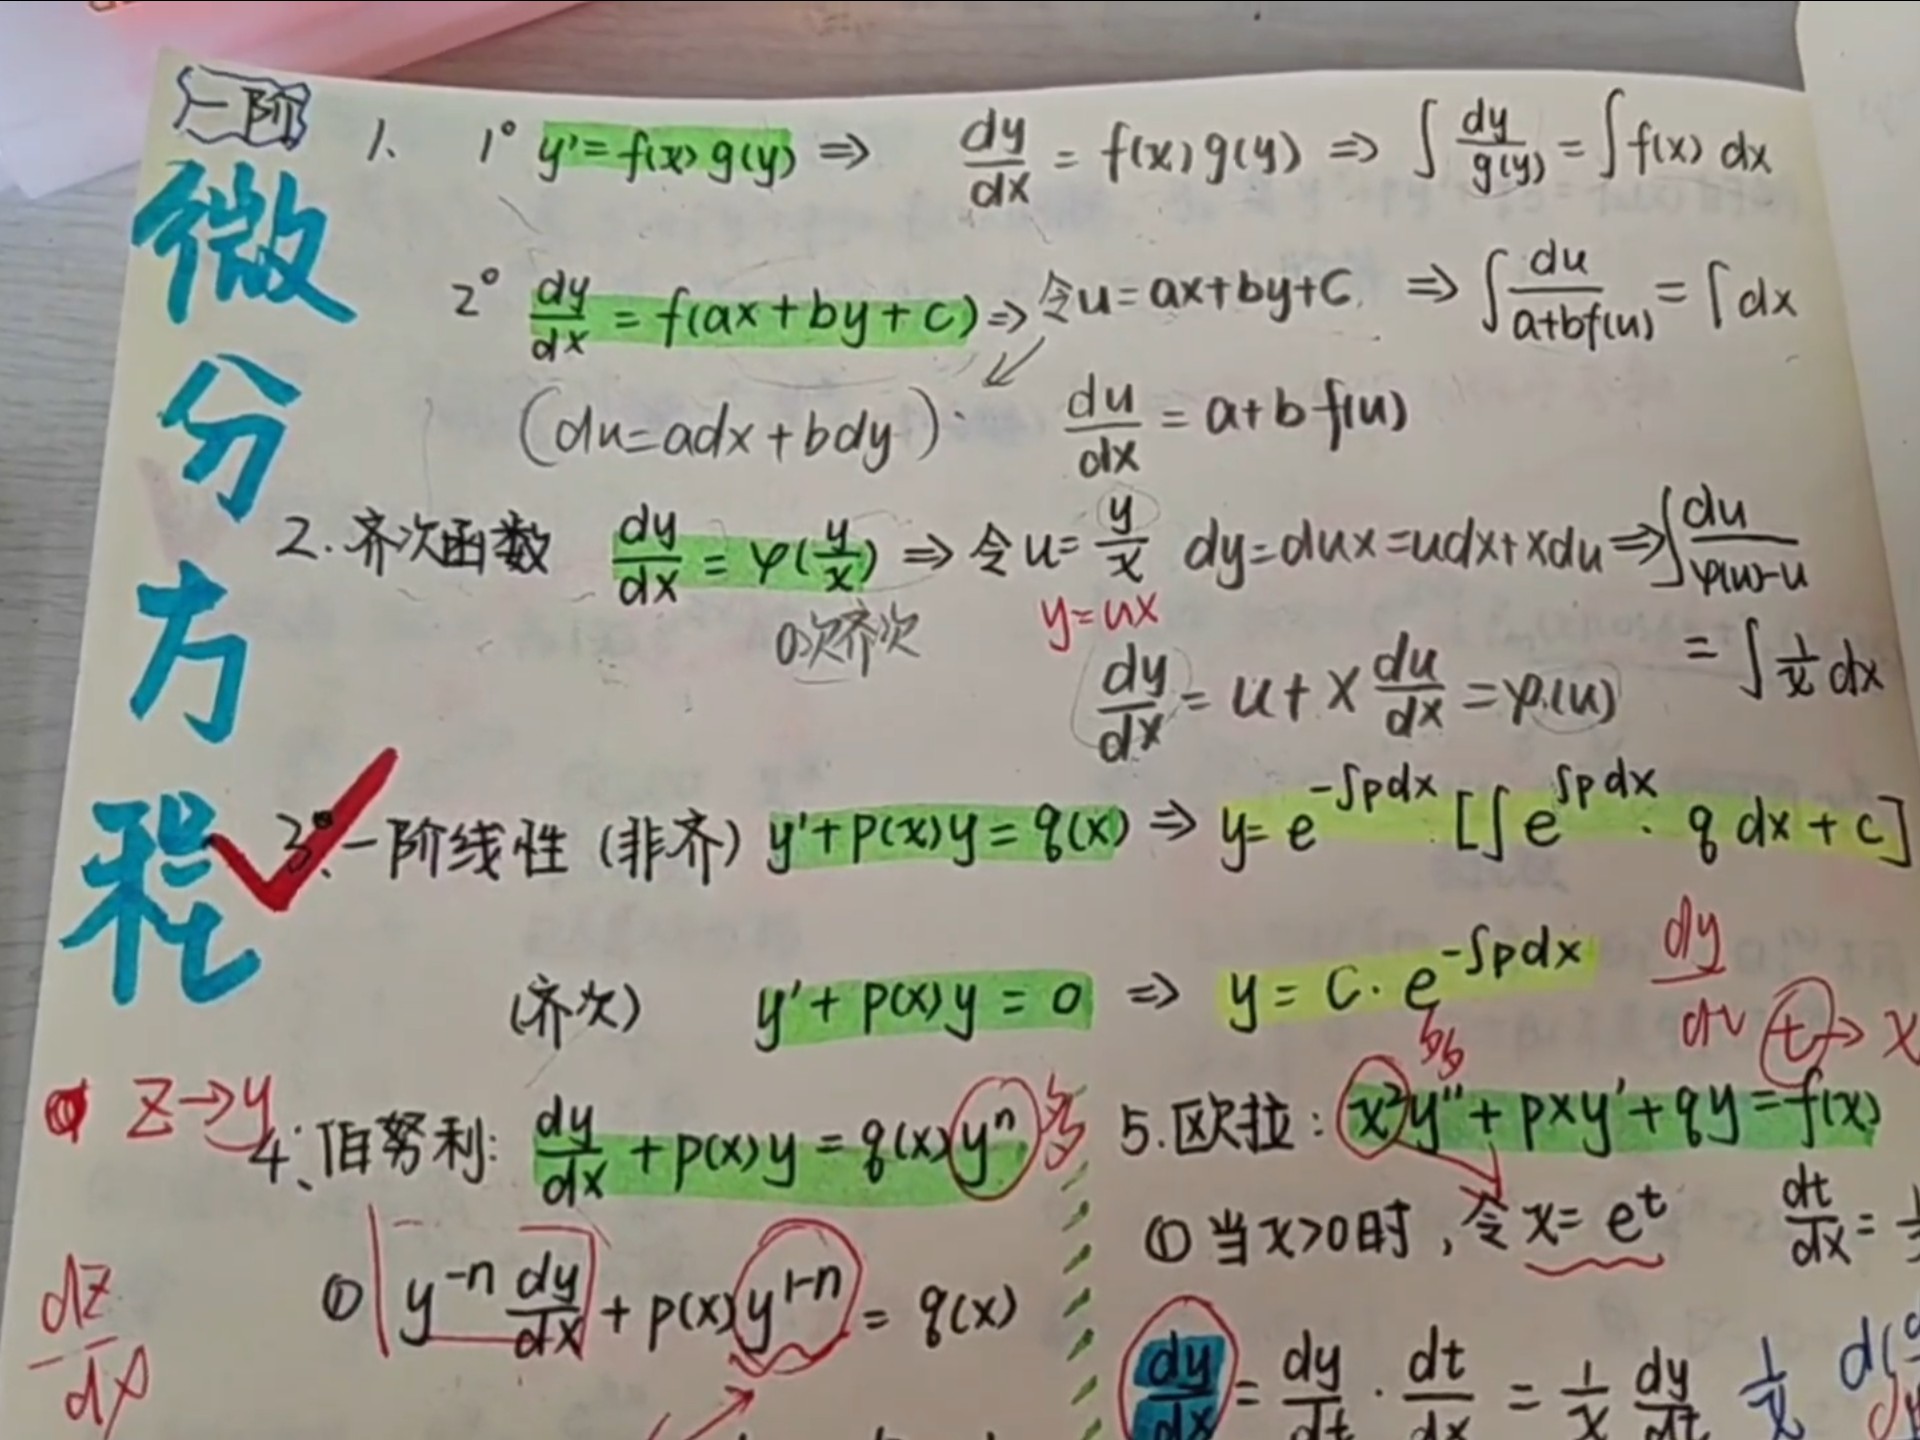 一阶
微分方程
1、 1° y'=f(x)g(y) ⇒ dy/dx = f(x)g(y) ⇒ ∫ dy/g(y) = ∫f(x) dx
2° dy/dx = f(ax+by+c) ⇒ 令u=ax+by+C ⇒ ∫ du/a+bf(u) = ∫dx
(du=adx+bdy) du/dx = a+b f(u)
2.齐次函数 dy/dx = φ(y/x) ⇒ 令u= y/x dy=dux=udx+xdu ⇒ ∫ du/φ(u)-u
0次齐次 y=ux = ∫ 1/x dx
dy/dx = u+x du/dx = φ(u)
3、一阶线性(非齐) y'+p(x)y=q(x) ⇒ y=e^-∫pdx [∫e^∫pdx · q dx+c]
(齐次) y'+p(x)y=0 ⇒ y=C·e^-∫pdx
dy
t → x
z→y
4、伯努利: dy/dx +p(x)y=q(x)y^n
① y^-n dy/dx + p(x)y^1-n = q(x)
dz/dx
5.欧拉: x²y''+pxy'+qy=f(x)
①当x>0时,令x=e^t dt/dx =
dy/dx = dy/dt · dt/dx = 1/x dy/dt 1/x